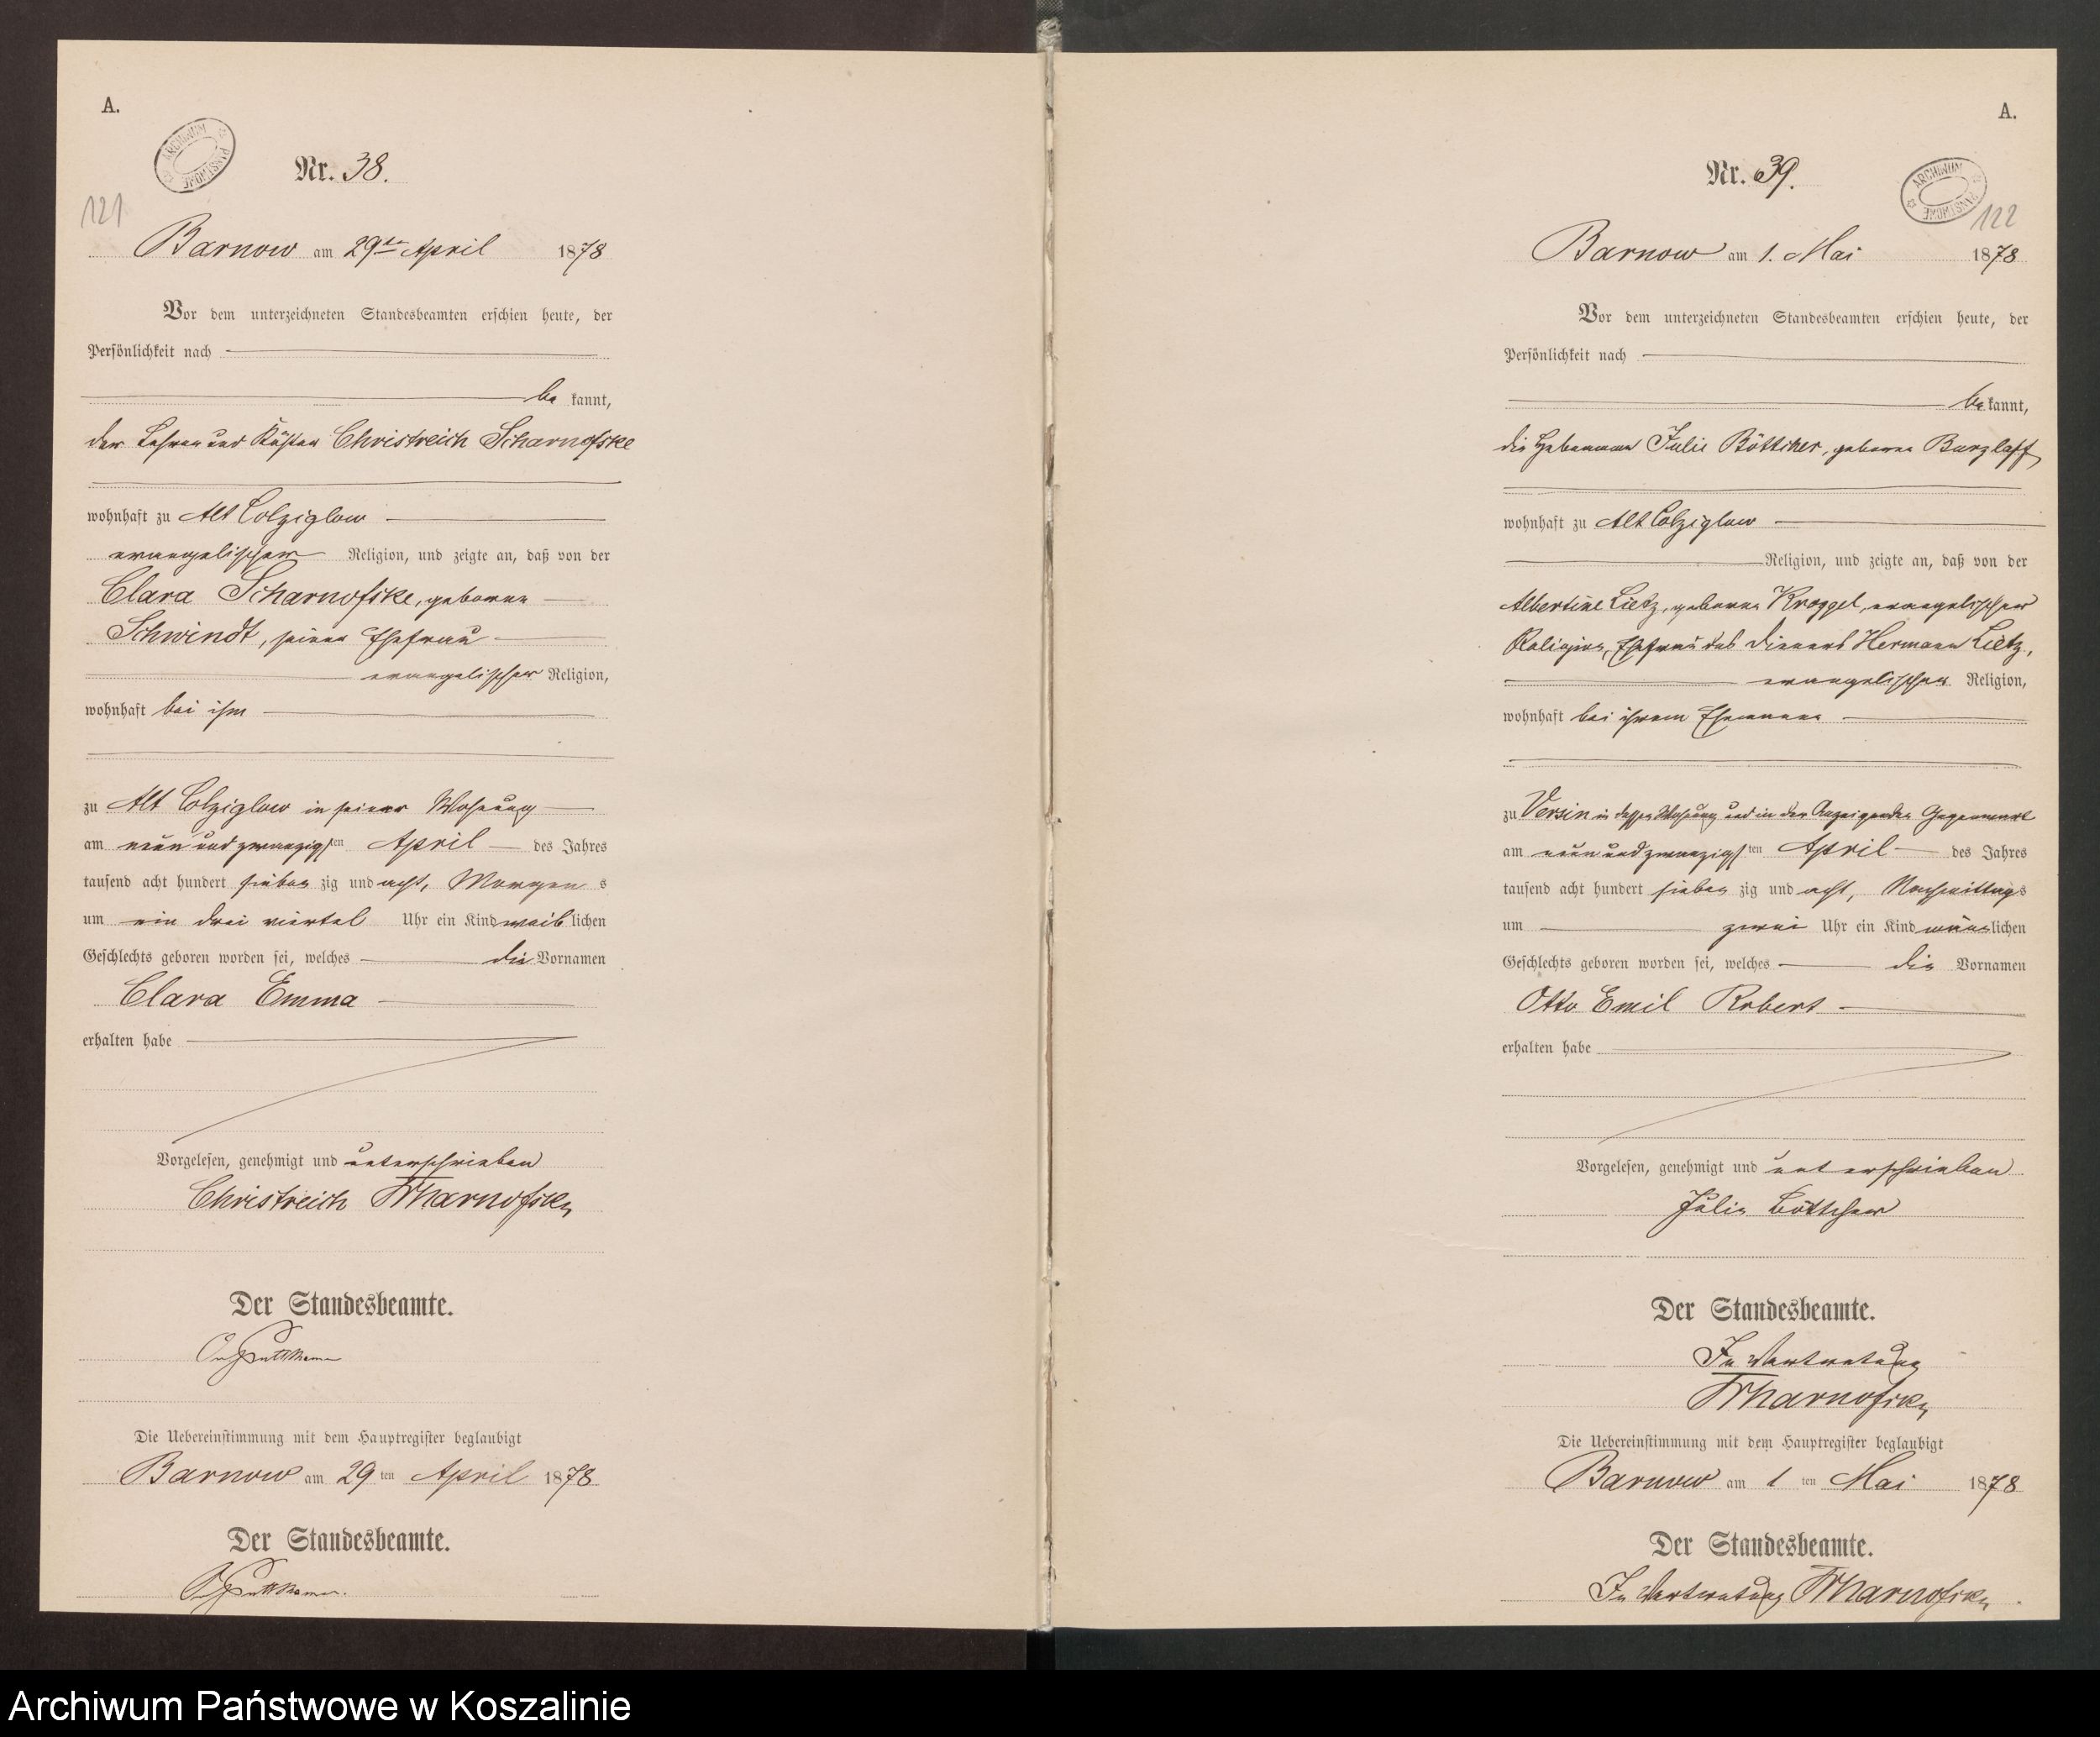 A.
ARCHIWUM PAŃSTWOWE
Nr. 38.
121
Barnow am 29ten April 1878
Vor dem unterzeichneten Standesbeamten erschien heute, der
Persönlichkeit nach
be kannt,
der Lehrer und Küster Christreich Scharnofske
wohnhaft zu Alt Colziglow
evangelischer Religion, und zeigte an, daß von der
Clara Scharnofske, geborene
Schwindt, seiner Ehefrau
evangelischer Religion,
wohnhaft bei ihm
zu Alt Colziglow in seiner Wohnung
am neun und zwanzigsten April des Jahres
tausend acht hundert sieben zig und acht, Morgens
um ein drei viertel Uhr ein Kind weiblichen
Geschlechts geboren worden sei, welches die Vornamen
Clara Emma
erhalten habe
Vorgelesen, genehmigt und unterschrieben
Christreich Scharnofske
Der Standesbeamte.
Puttkamer
Die Uebereinstimmung mit dem Hauptregister beglaubigt
Barnow am 29ten April 1878
Der Standesbeamte.
Puttkamer.
A.
Nr. 39.
ARCHIWUM PAŃSTWOWE
122
Barnow am 1. Mai 1878
Vor dem unterzeichneten Standesbeamten erschien heute, der
Persönlichkeit nach
be kannt,
die Hebamme Julie Böttcher, geborene Burzlaff
wohnhaft zu Alt Colziglow
Religion, und zeigte an, daß von der
Albertine Lietz, geborene Kroggel, evangelischer
Religion, Ehefrau des Dieners Hermann Lietz,
evangelischer Religion,
wohnhaft bei ihrem Ehemanne
zu Versin in dessen Wohnung und in der Anzeigenden Gegenwart
am neun und zwanzigsten April des Jahres
tausend acht hundert sieben zig und acht, Nachmittags
um zwei Uhr ein Kind männlichen
Geschlechts geboren worden sei, welches die Vornamen
Otto Emil Robert
erhalten habe
Vorgelesen, genehmigt und unterschrieben
Julie Böttcher
Der Standesbeamte.
In Vertretung
Scharnofske
Die Uebereinstimmung mit dem Hauptregister beglaubigt
Barnow am 1ten Mai 1878
Der Standesbeamte.
In Vertretung Scharnofske.
Archiwum Państwowe w Koszalinie